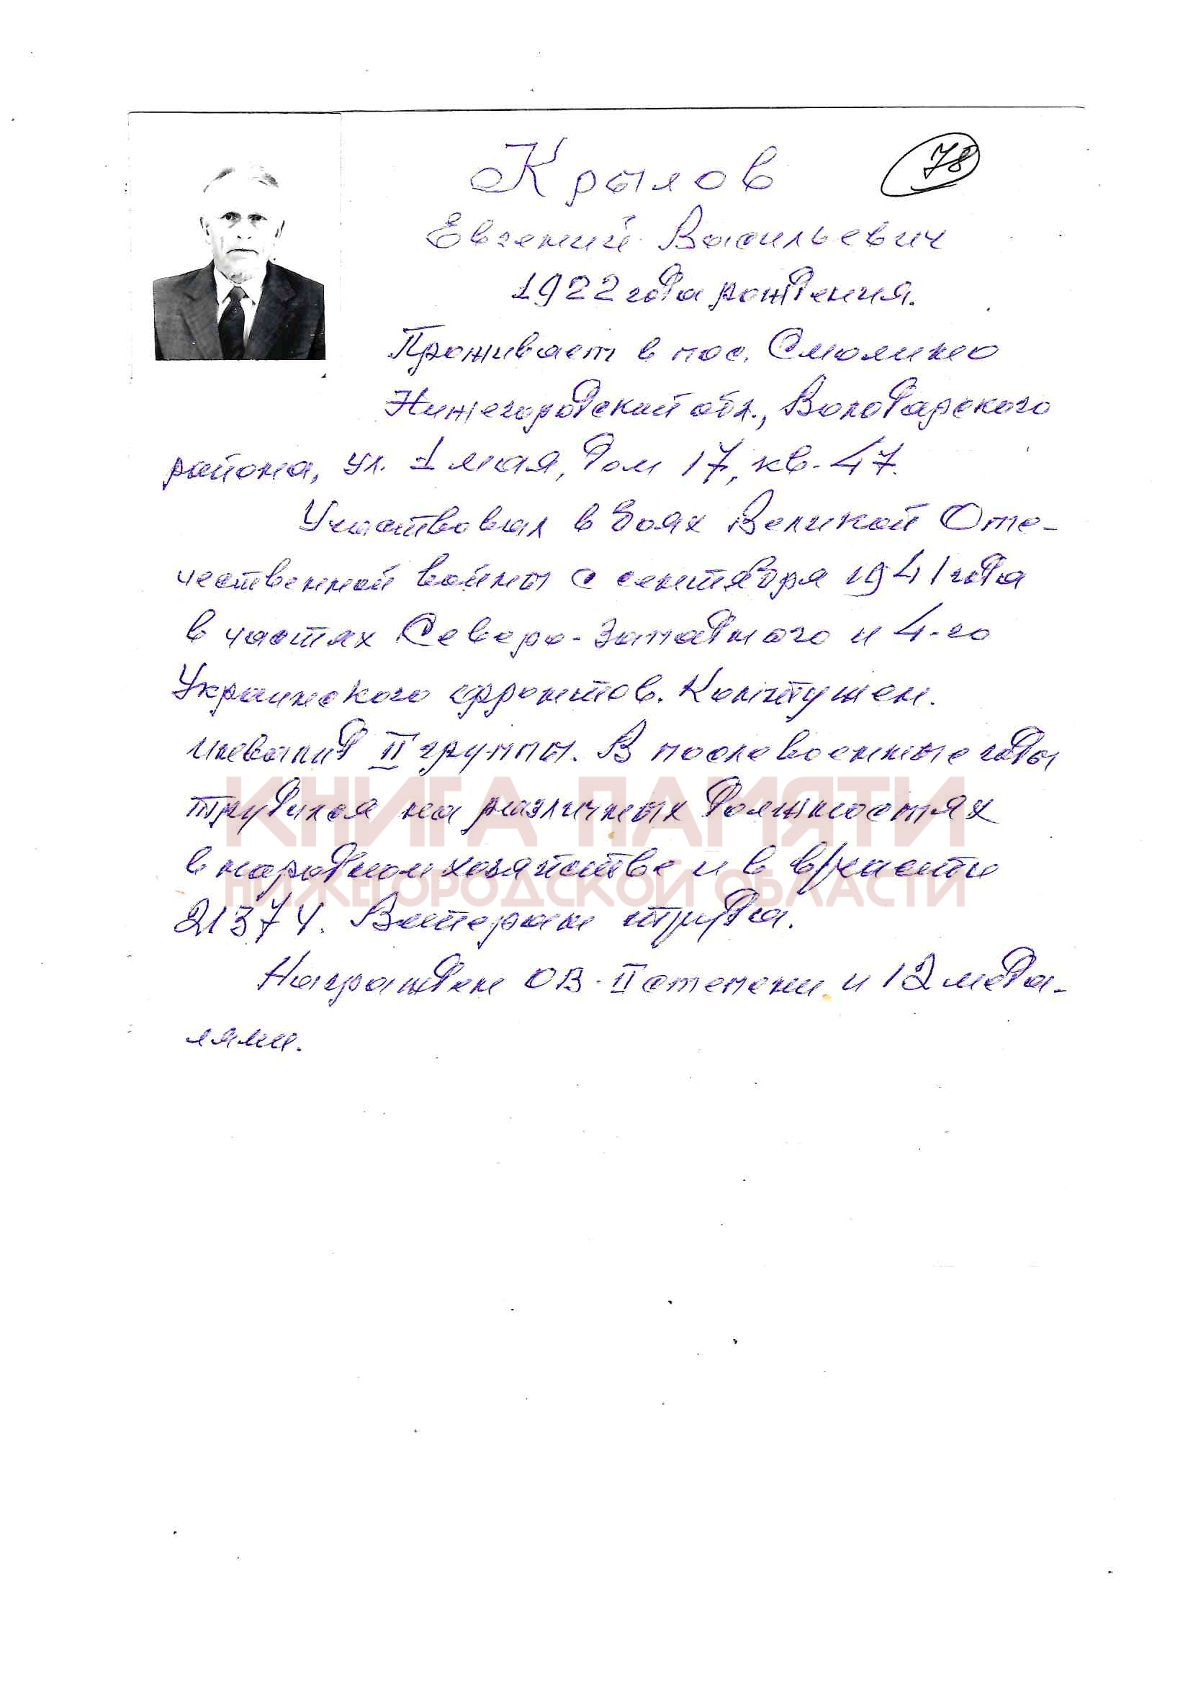 78
Крылов
Евгений Васильевич
1922 года рождения.
Проживает в пос. Смолино
Нижегородской обл., Володарского
района, ул. 1 мая, дом 17, кв. 47.
Участвовал в боях Великой Оте-
чественной войны с сентября 1941 года
в частях Северо-Западного и 4-го
Украинского фронтов. Контужен.
Инвалид II группы. В послевоенные годы
трудился на различных должностях
в народном хозяйстве и в в/части
21374. Ветеран труда.
Награжден ОВ-II степени и 12 меда-
лями.
КНИГА ПАМЯТИ
НИЖЕГОРОДСКОЙ ОБЛАСТИ